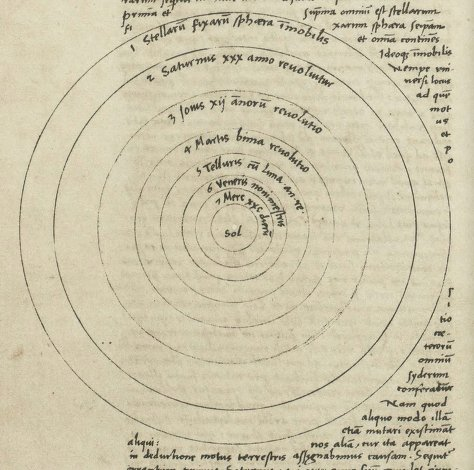 prima et
Suprema omnium est stellarum
fixarum sphæra seipsam
et omnia continens
Ideoque immobilis
Nempe uni
versi locus
ad quem
mot
us
et
p
o
1 Stellarū fixarū sphæra īmobilis
2 Saturnus xxx anno reuoluitur
3 Jouis xij annorū reuolutio
4 Martis bima reuolutio
5 Telluris cū Luna an. re.
6 Veneris nonimestris
7 Merc xxc dierū
Sol
s
i
tio
cæ
terorū
omniū
syderum
conferatur
Nam quod
aliquo modo illā
etiā mutari existimāt
aliqui:
nos aliā, cur ita appareat
in deductione motus terrestris assignabimus causam. Sequit